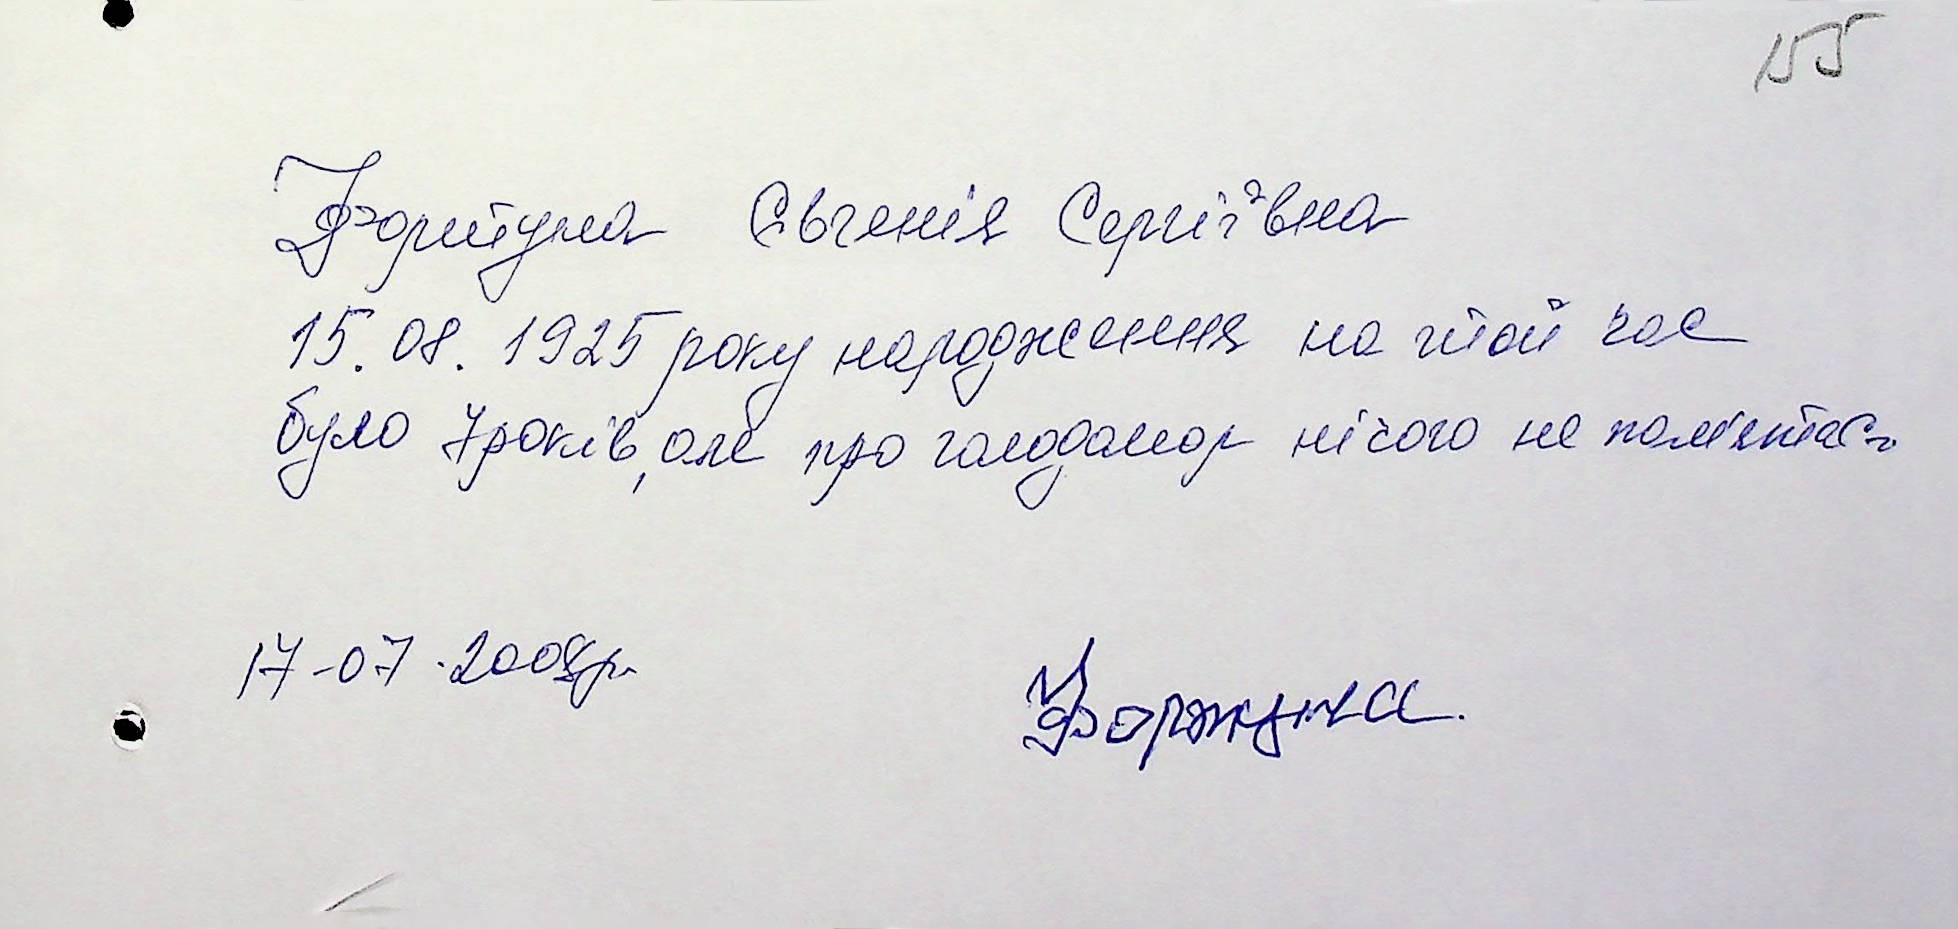 155
Фортуна Євгенія Сергіївна
15.08.1925 року народження на той час
було 7 років, але про голодомор нічого не пам'ятає.
17-07.2008р.
Фортуна.